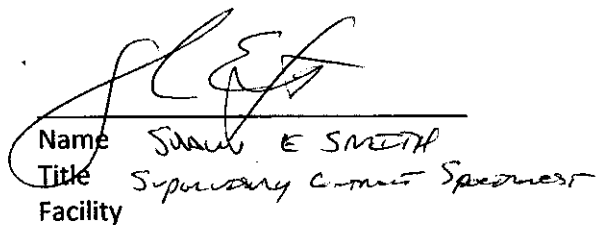 Name SHAWN E SMITH
Title Supervisory Contract Specialist
Facility